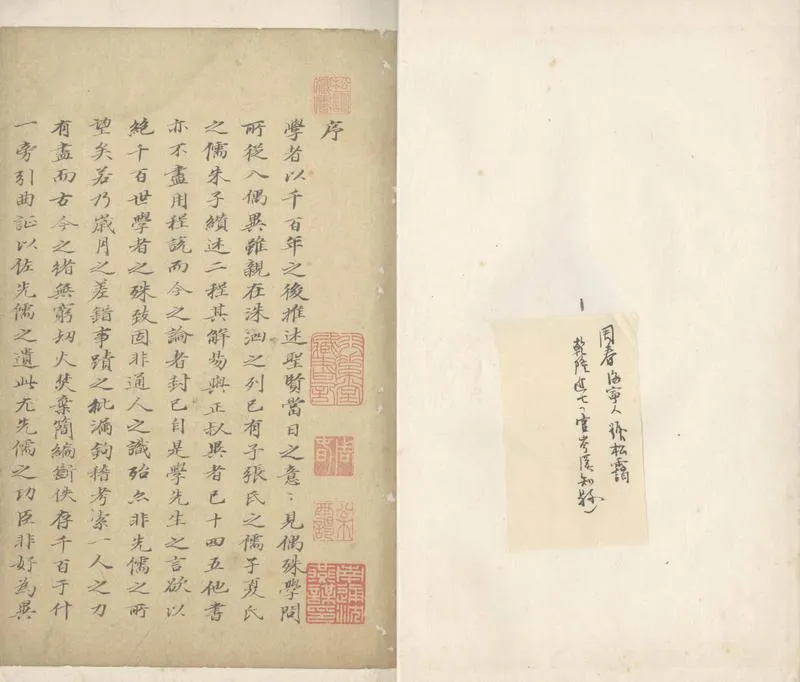 周春海寧人號松靄
乾隆進士官岑溪知縣
序
學者以千百年之後推述聖賢當日之意〻見偶殊學問
所從入偶異雖親在洙泗之列已有子張氏之儒子夏氏
之儒朱子纘述二程其解易與正叔異者已十四五他書
亦不盡用程說而今之論者封已自是學先生之言欲以
絕千百世學者之殊致固非通人之識殆亦非先儒之所
望矣若乃歲月之差錯事蹟之紕漏鉤稽考索一人之力
有盡而古今之緒無窮刼火焚棄簡編斷佚存千百于什
一旁引曲証以佐先儒之遺此尤先儒之功臣非好為異
周春